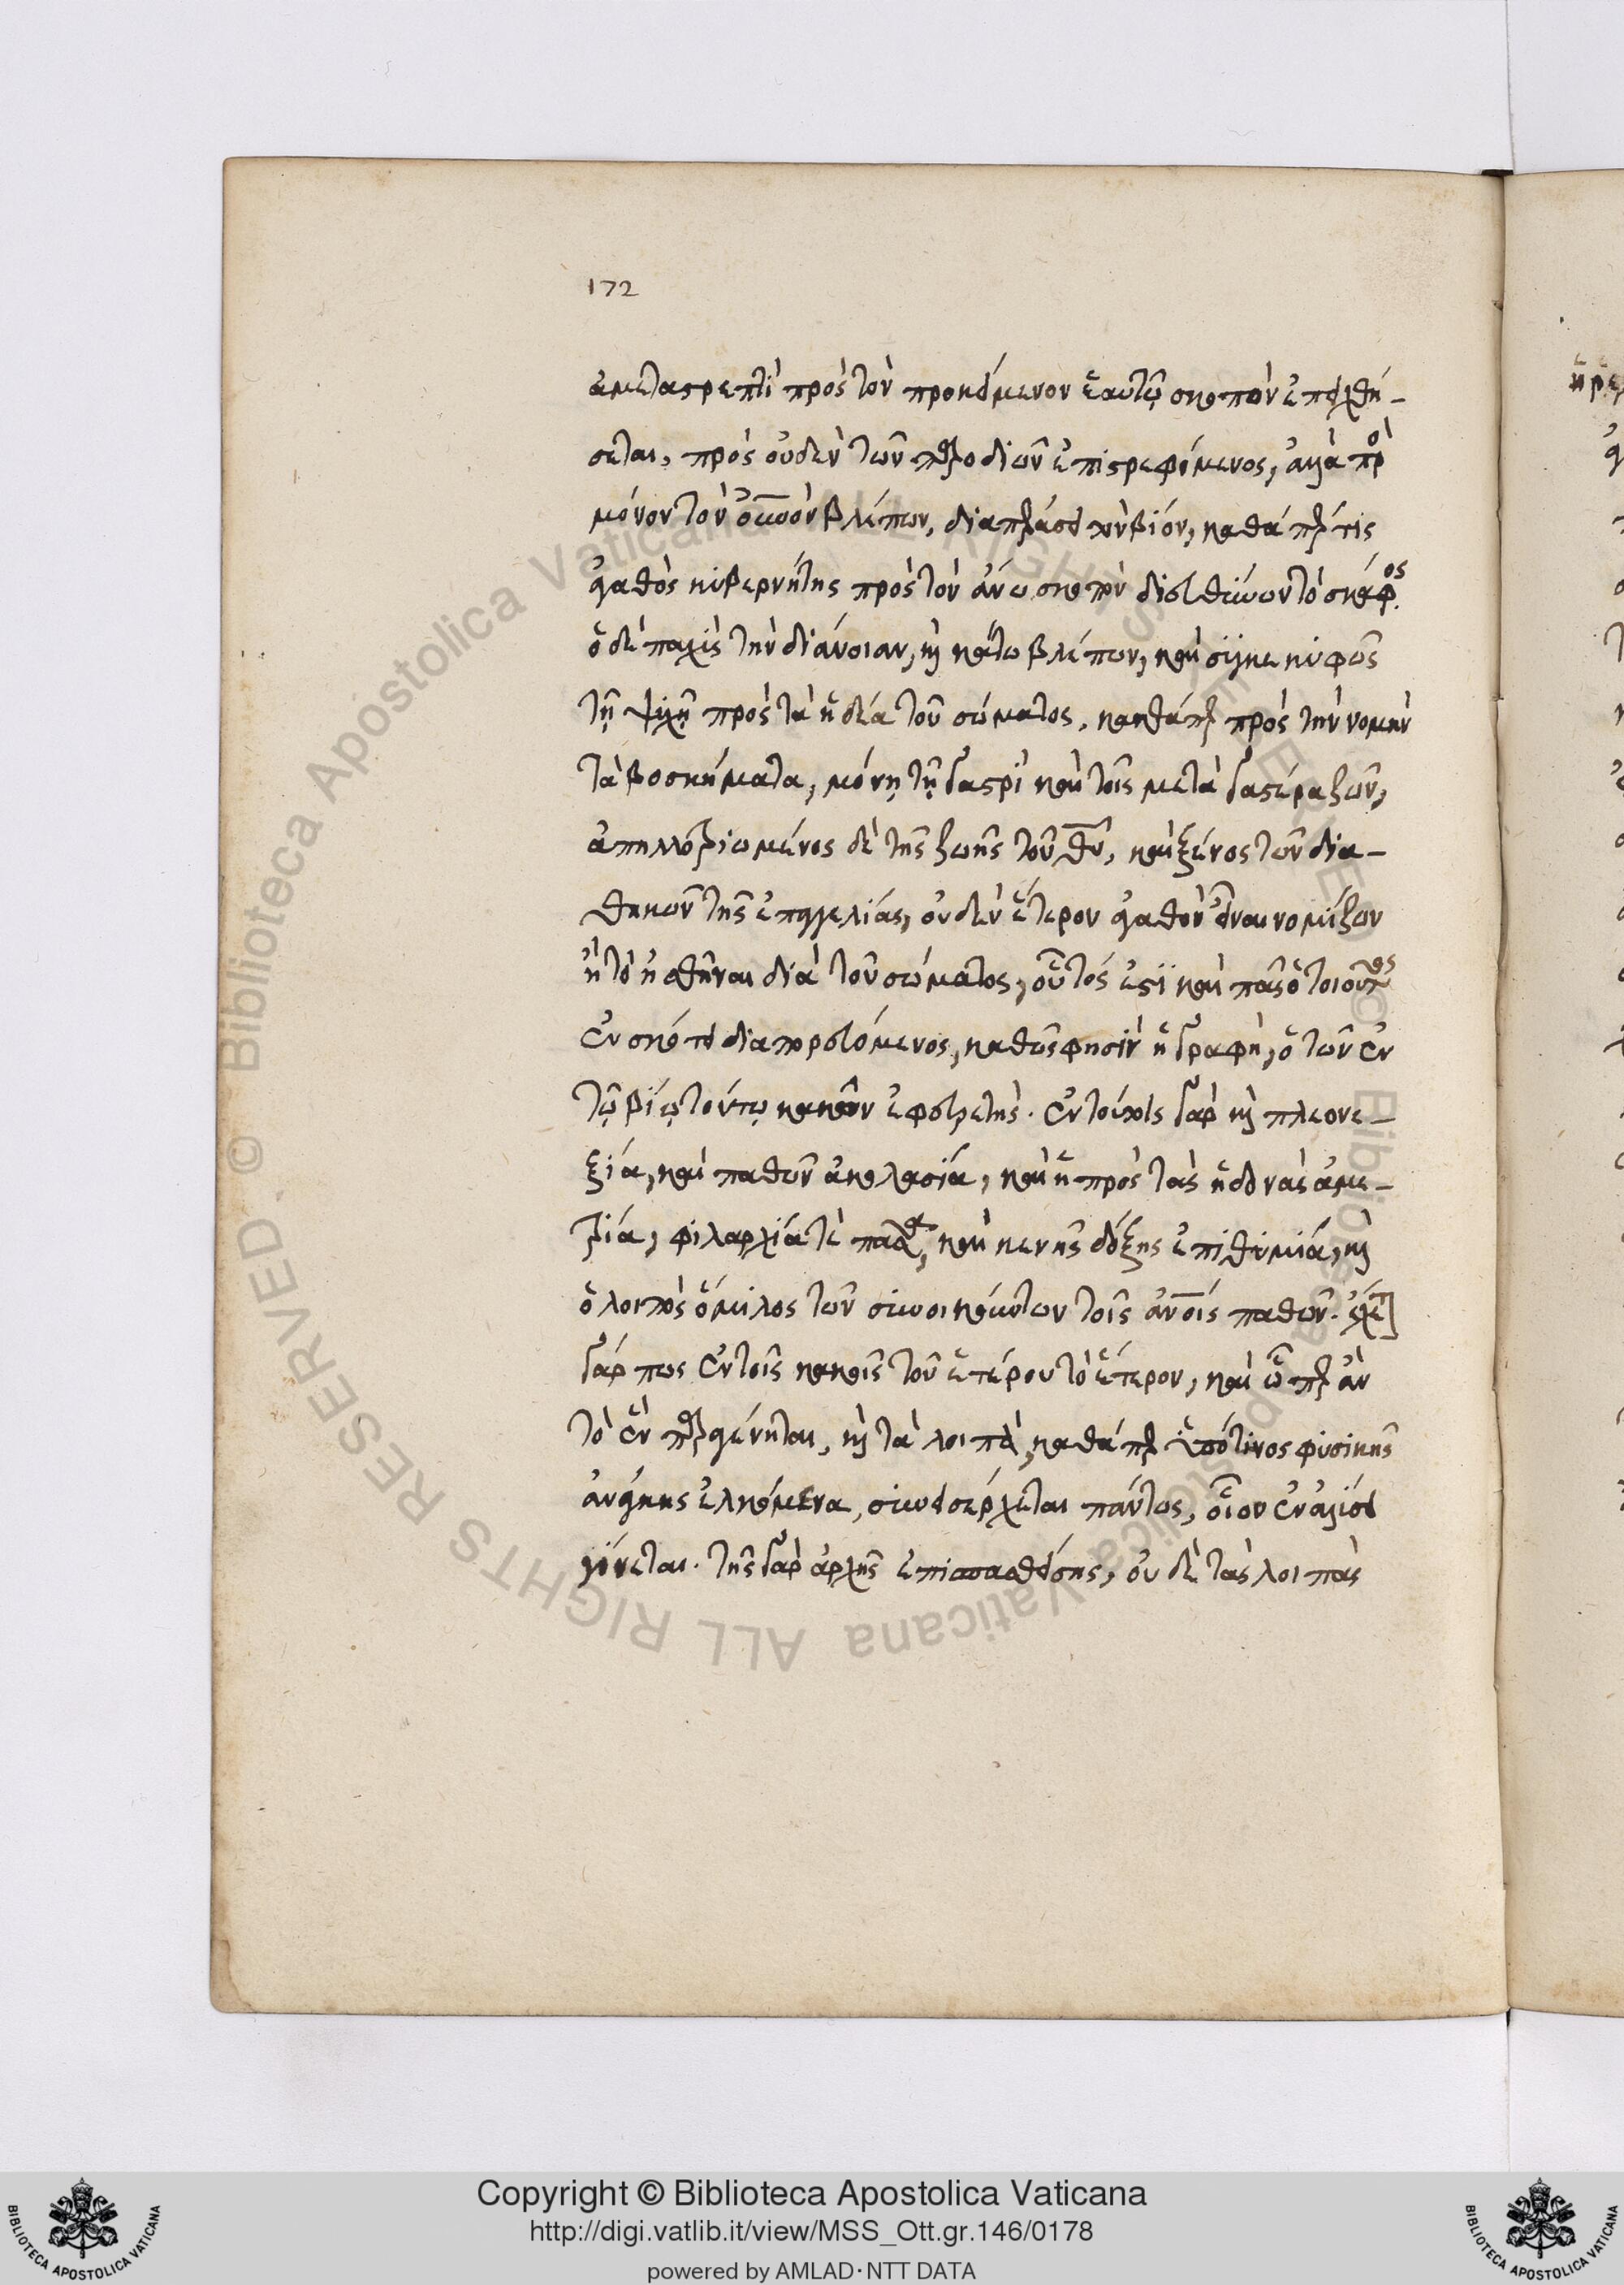 172
ἀμεταστρεπτὶ πρὸς τὸν προκείμενον ἑαυτῷ σκοπὸν ἐπειχθή-
σεται, πρὸς οὐδὲν τῶν παροδίων ἐπιστρεφόμενος, ἀλλὰ πρὸ
μόνον τὸν οὐνον βλέπων, διαπεράσει τὸν βίον, καθάπερ τις
ἀγαθὸς κυβερνήτης πρὸς τὸν ἄνω σκοπὸν διευθύνων τὸ σκάφος.
ὁ δὲ παχὺς τὴν διάνοιαν, καὶ κάτω βλέπων, καὶ συγκεκυφὼς
τῇ ψυχῇ πρὸς τὰ ἡδέα τοῦ σώματος, καθάπερ πρὸς τὴν νομὴν
τὰ βοσκήματα, μόνῃ τῇ γαστρὶ καὶ τοῖς μετὰ γαστέρα ζῶν,
ἀπηλλοτριωμένος δὲ τῆς ζωῆς τοῦ θυ, καὶ ξένος τῶν δια-
θηκῶν τῆς ἐπαγγελίας, οὐδὲν ἕτερον ἀγαθὸν εἶναι νομίζων
ἢ τὸ ἡσθῆναι διὰ τοῦ σώματος, οὗτός ἐστι καὶ πᾶς ὁ τοιοῦτος
ἐν σκότει διαπορευόμενος, καθώς φησὶν ἡ γραφή, ὁ τῶν ἐν
τῷ βίῳ τούτῳ κακῶν ἐφευρετής. ἐν τούτοις γὰρ καὶ πλεονε-
ξία, καὶ παθῶν ἀκολασία, καὶ ἡ πρὸς τὰς ἡδονὰς ἀμε-
τρία, φιλαρχία τὲ πᾶσα, καὶ κενῆς δόξης ἐπιθυμία, καὶ
ὁ λοιπὸς ὅμιλος τῶν συνοικούντων τοῖς ἀνοις παθῶν. ἔχεται
γάρ πως ἐν τοῖς κακοῖς τοῦ ἑτέρου τὸ ἕτερον, καὶ ᾧπερ ἂν
τὸ ἓν παραγένηται, καὶ τὰ λοιπὰ, καθάπερ ὑπό τινος φυσικῆς
ἀνάγκης ἑλκόμενα, συνεισέρχεται πάντως, οἷον ἐν ἁλύσει
γίνεται. τῆς γὰρ ἀρχῆς ἐπισπασθείσης, οὐδὲ τὰς λοιπὰς
Copyright © Biblioteca Apostolica Vaticana
http://digi.vatlib.it/view/MSS_Ott.gr.146/0178
powered by AMLAD·NTT DATA